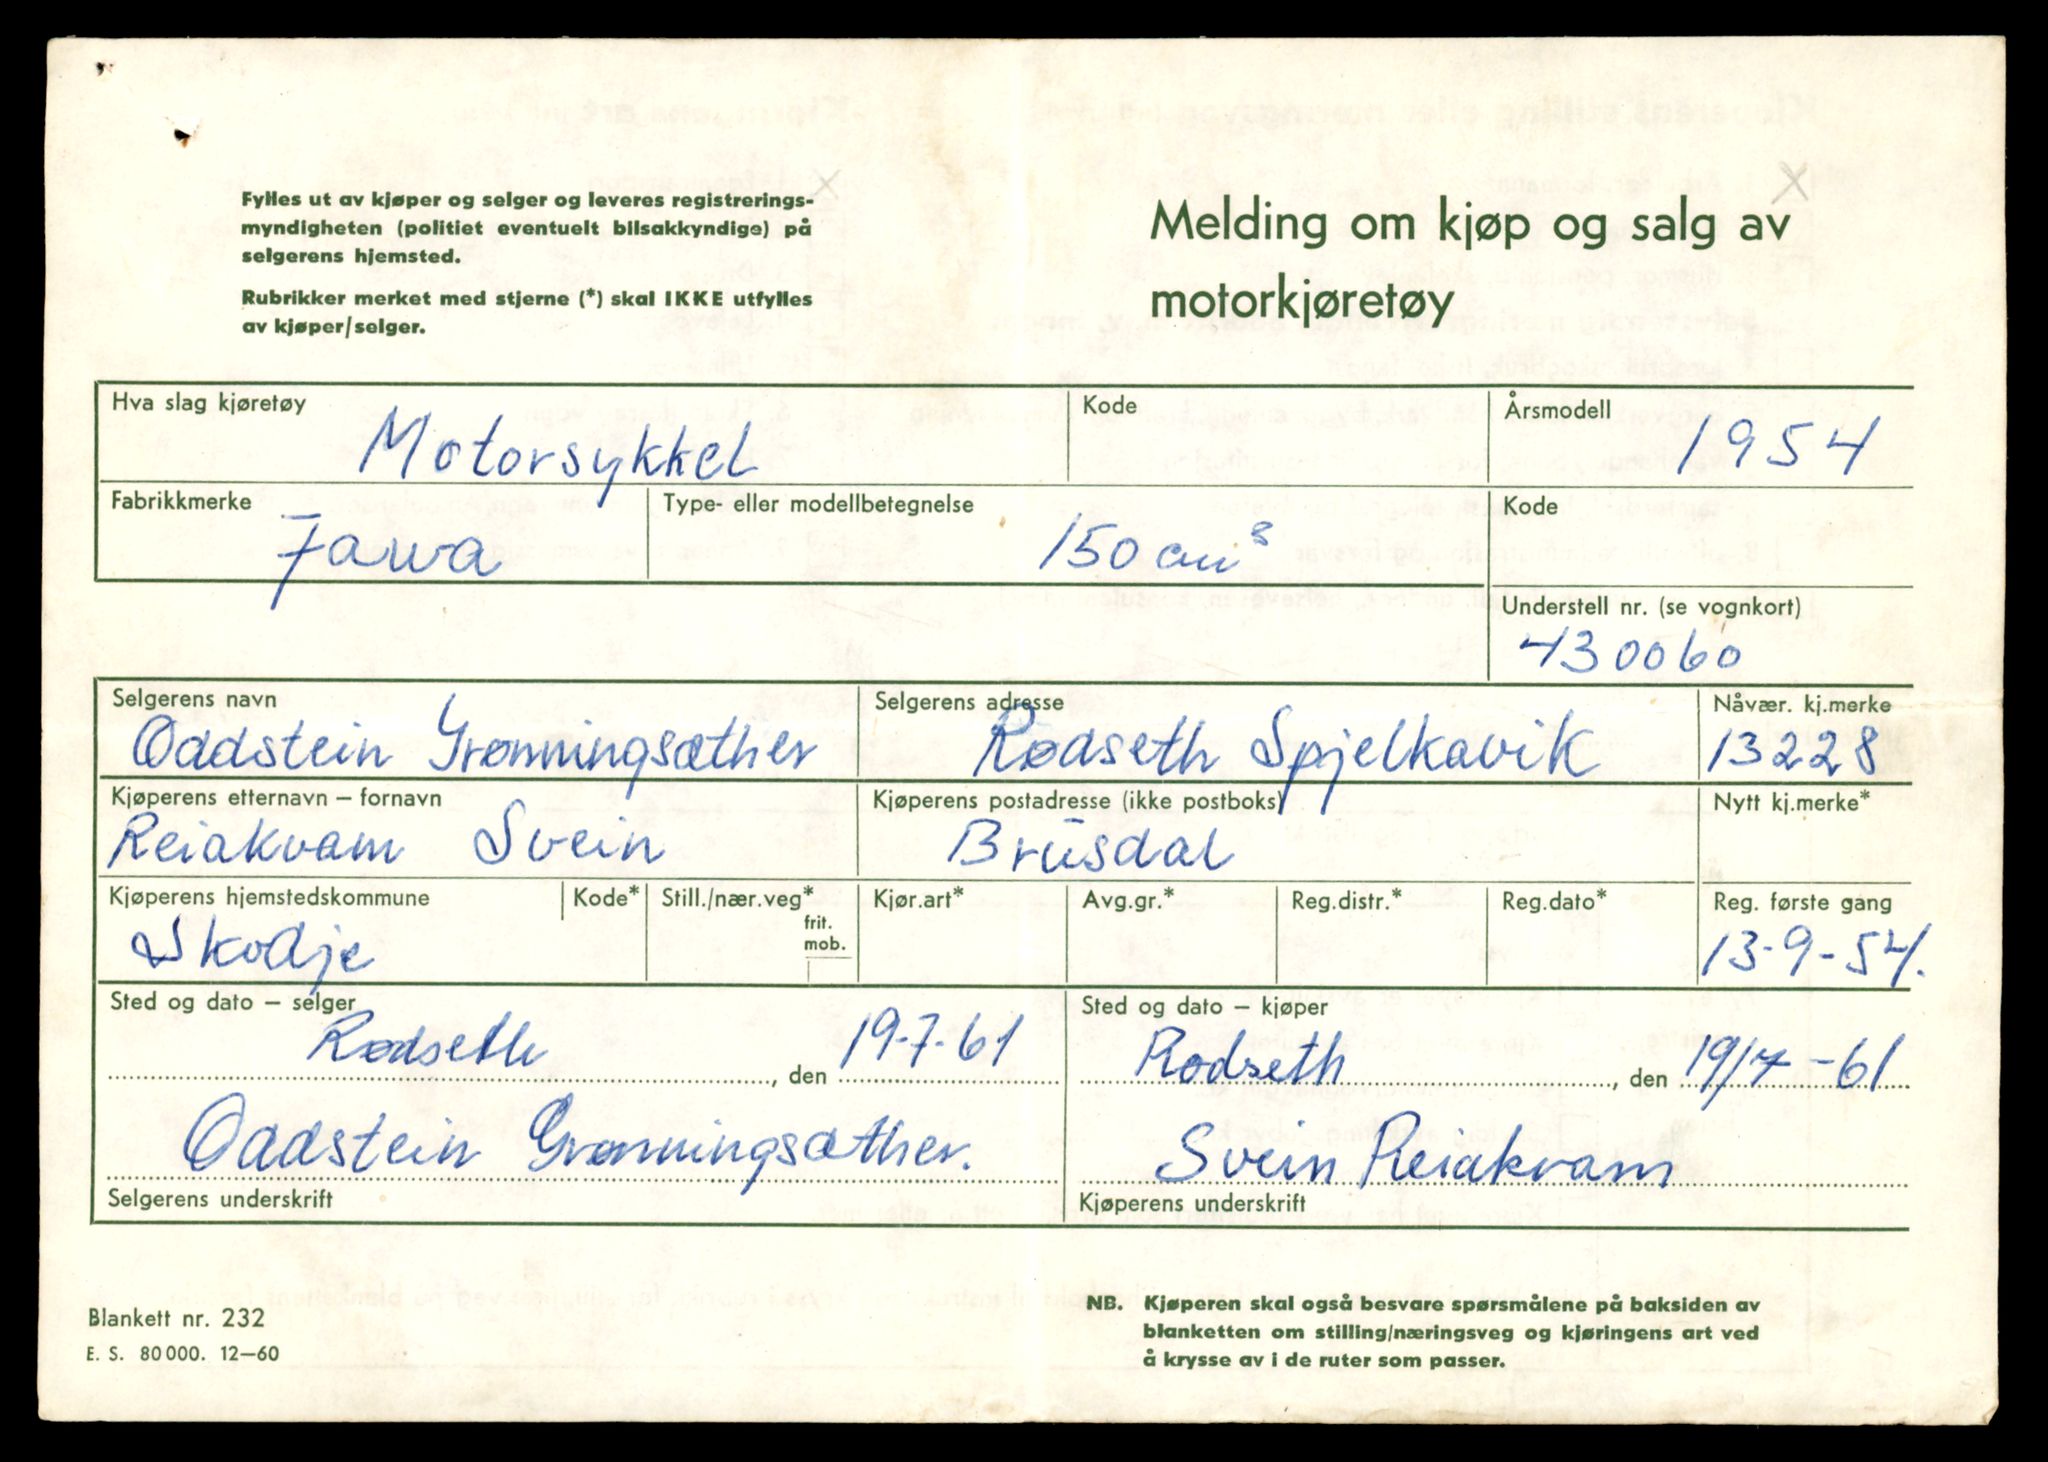 Fylles ut av kjøper og selger og leveres registrerings-
myndigheten (politiet eventuelt bilsakkyndige) på
selgerens hjemsted.
Rubrikker merket med stjerne (*) skal IKKE utfylles
av kjøper/selger.
Melding om kjøp og salg av
motorkjøretøy
Hva slag kjøretøy
Motorsykkel
Kode
Årsmodell
1954
Fabrikkmerke
Jawa
Type- eller modellbetegnelse
150 cm³
Kode
Understell nr. (se vognkort)
430060
Selgerens navn
Oddstein Grønningsæther
Selgerens adresse
Rødseth Spjelkavik
Nåvær. kj.merke
13228
Kjøperens etternavn – fornavn
Reiakvam Svein
Kjøperens postadresse (ikke postboks)
Brusdal
Nytt kj.merke*
Kjøperens hjemstedskommune
Skodje
Kode*
Still./nær.veg*
frit.
mob.
Kjør.art*
Avg.gr.*
Reg.distr.*
Reg.dato*
Reg. første gang
13-9-54.
Sted og dato – selger
Rødseth, den 19-7-61
Oddstein Grønningsæther.
Selgerens underskrift
Sted og dato – kjøper
Rodseth, den 19/7-61
Svein Reiakvam
Kjøperens underskrift
Blankett nr. 232
E. S. 80000. 12–60
NB. Kjøperen skal også besvare spørsmålene på baksiden av
blanketten om stilling/næringsveg og kjøringens art ved
å krysse av i de ruter som passer.